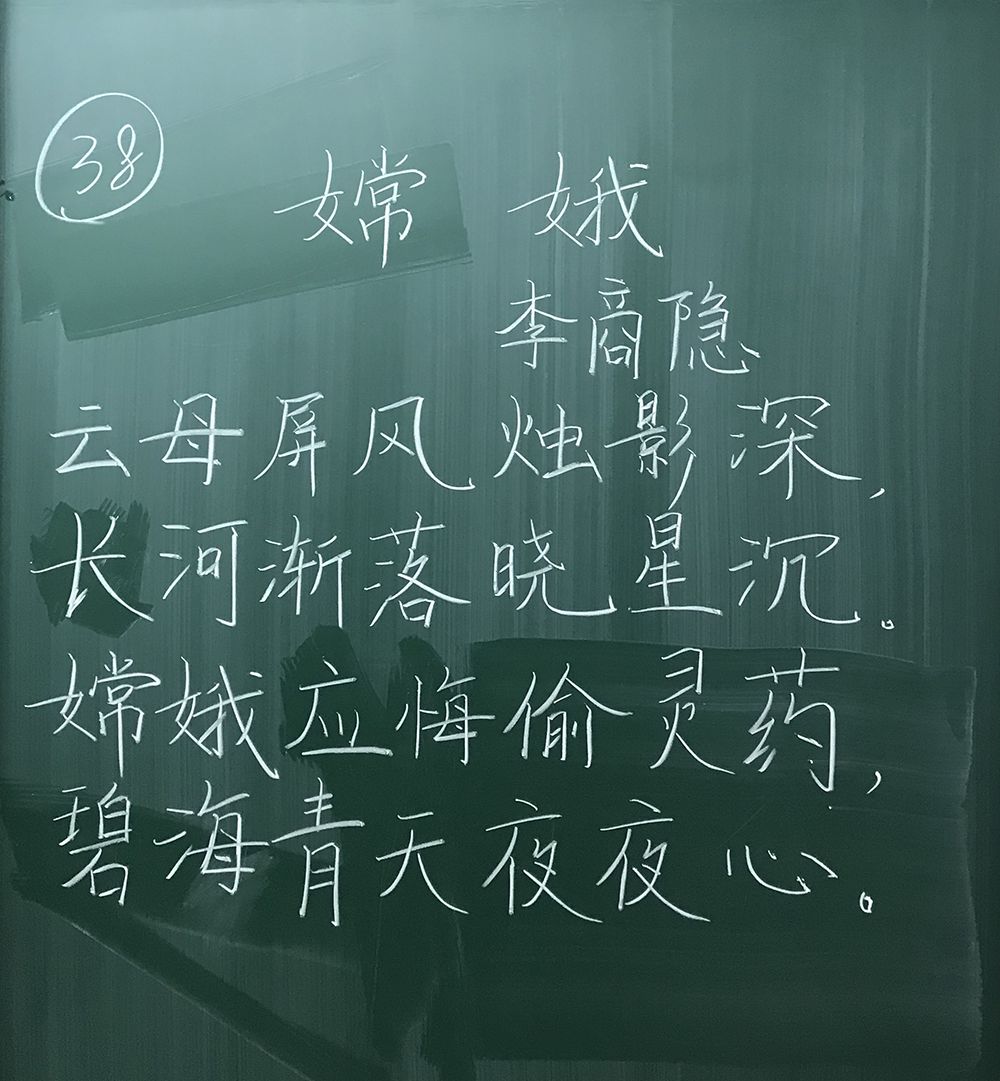 38
嫦娥
李商隐
云母屏风烛影深,
长河渐落晓星沉。
嫦娥应悔偷灵药,
碧海青天夜夜心。